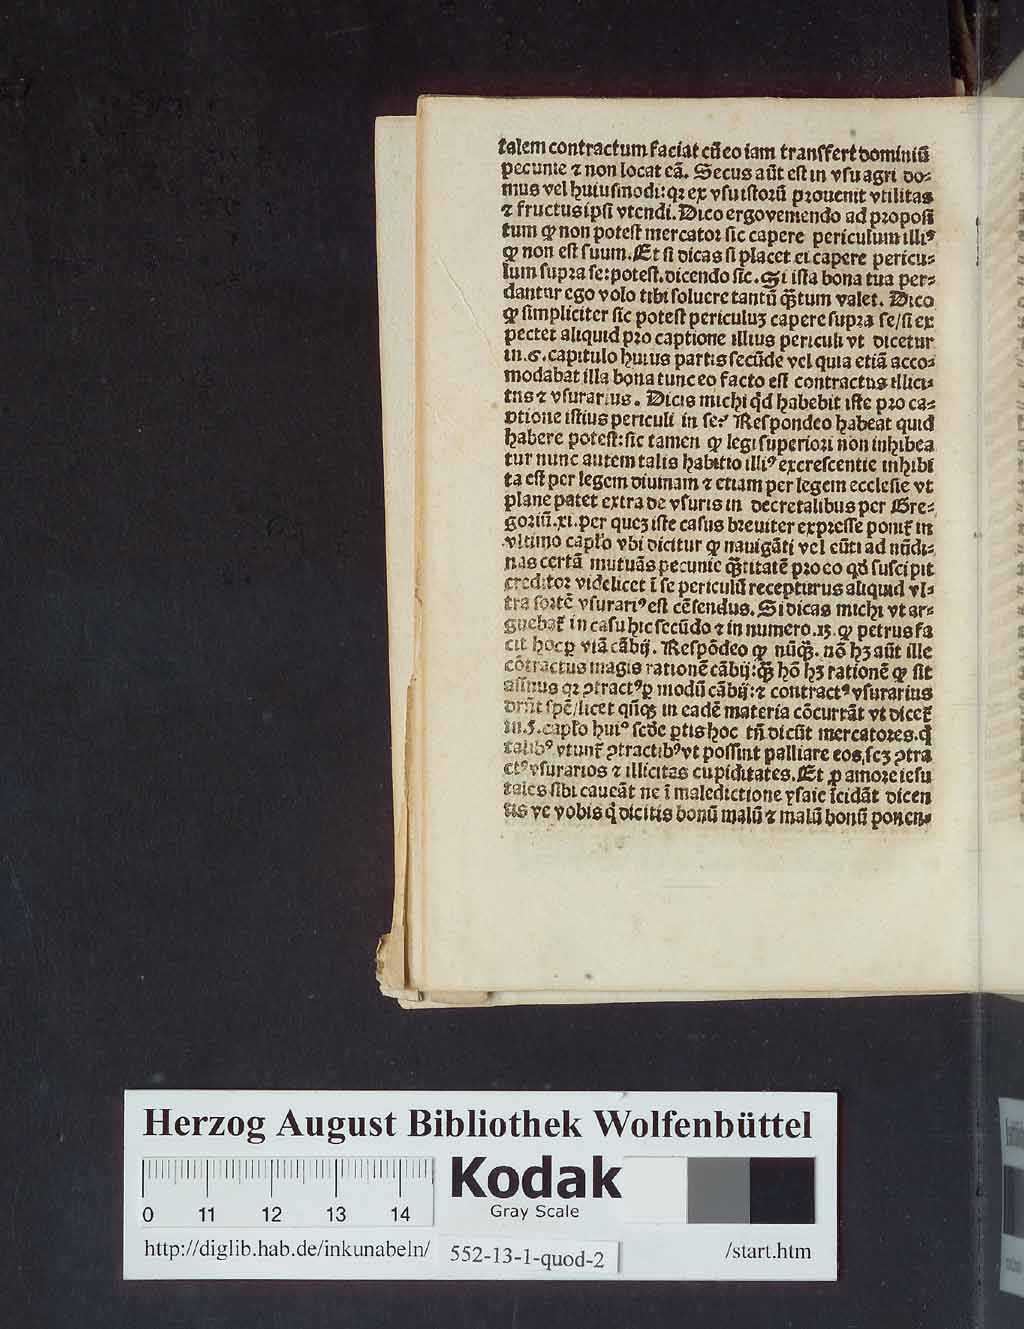 talem contractum faciat cū eo iam transfert dominiū
pecunie ⁊ non locat eā. Secus aūt est in vsu agri do-
mus vel huiusmodi: qꝛ ex vsu istoꝝ prouenit vtilitas
⁊ fructus ipsi vtendi. Dico ergo veniendo ad proposi
tum ꝙ non potest mercator sic capere periculum illiꝰ
ꝙ non est suum. Et si dicas si placet ei capere pericu-
lum supra se: potest. dicendo sic. Si ista bona tua per-
dantur ego volo tibi soluere tantū ꝙ̄tum valet. Dico
ꝙ simpliciter sic potest periculuȝ capere supra se/ si ex
pectet aliquid pro captione illius periculi vt dicetur
in .6. capitulo huius partis secūde vel quia etiā acco-
modabat illa bona tunc eo facto est contractus illici-
tus ⁊ vsurarius. Dicis michi qd habebit iste pro ca-
ptione istius periculi in se? Respondeo habeat quid
habere potest: sic tamen ꝙ legi superiori non inhibea
tur nunc autem talis habitio illiꝰ excrescentie inhibi
ta est per legem diuinam ⁊ etiam per legem ecclesie vt
plane patet extra de vsuris in decretalibus per Gre-
goriū .xi. per queȝ iste casus breuiter expresse ponit᷑ in
vltimo cap̄lo vbi dicitur ꝙ nauigāti vel eūti ad nūdi-
nas certā mutuās pecunie ꝙ̄titatē pro eo qd̄ suscipit
creditor videlicet ī se periculū recepturus aliquid vl-
tra sortē vsurariꝰ est cēsendus. Si dicas michi vt ar-
guebat᷑ in casu hic secūdo ⁊ in numero .13. ꝙ petrus fa
cit hoc ꝑ viā cābij. Respōdeo ꝙ nūꝙ̄. nō hȝ aūt ille
cōtractus magis rationē cābij: ꝙ̄ hō hȝ rationē ꝙ sit
asinus qꝛ ꝯtractꝰ ꝑ modū cābij: ⁊ contractꝰ vsurarius
dr̄nt spē/ licet qn̄qȝ in eadē materia cōcurrāt vt dicet᷑
in .5. cap̄lo huiꝰ scd̄e ꝑtis hoc tn̄ dicūt mercatores. q̄
talibꝰ vtunt᷑ ꝯtractibꝰ vt possint palliare eos, scȝ ꝯtra
ctꝰ vsurarios ⁊ illicitas cupiditates. Et ꝓ amore iesu
tales sibi caueāt ne ī maledictione ysaie īcidāt dicen
tis ve vobis q̄ dicitis bonū malū ⁊ malū bonū ponen-
Herzog August Bibliothek Wolfenbüttel
0 11 12 13 14
Kodak
Gray Scale
http://diglib.hab.de/inkunabeln/ 552-13-1-quod-2 /start.htm